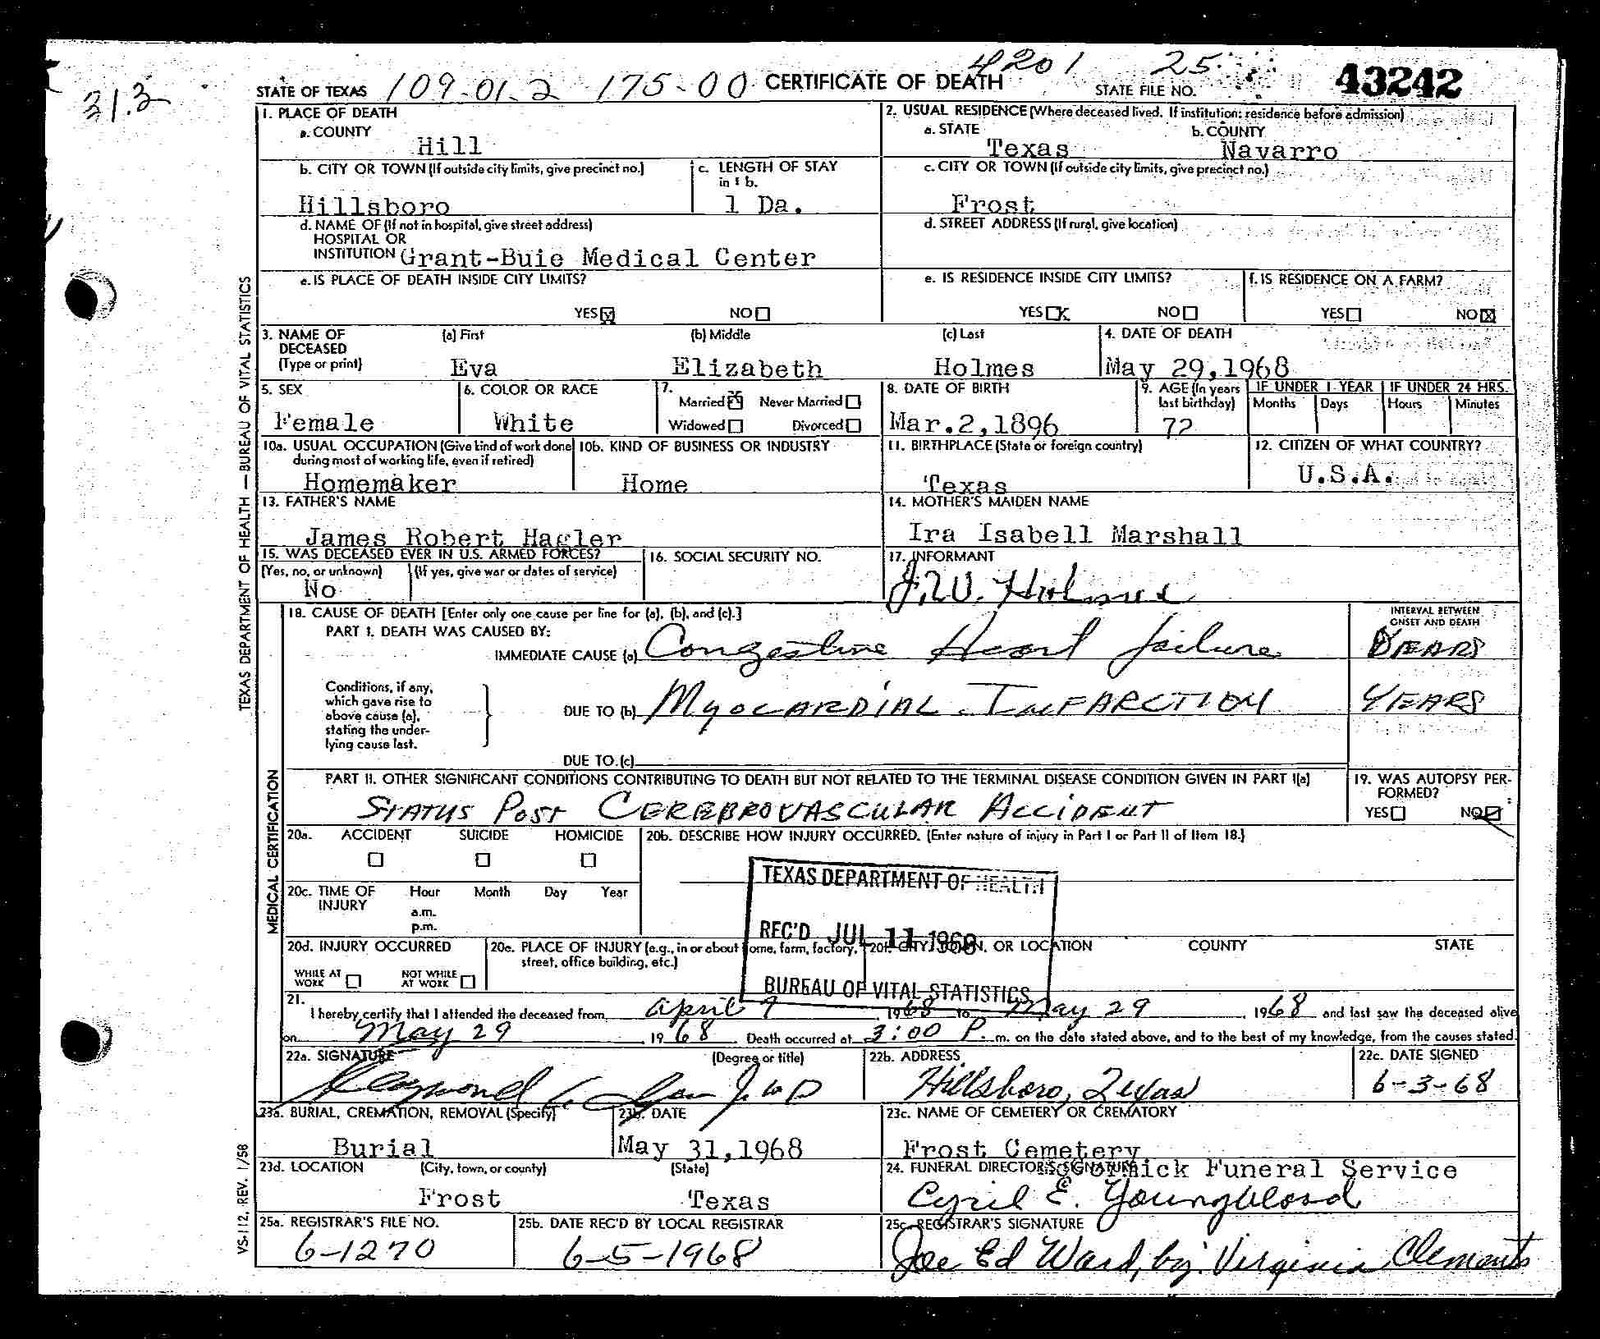 4201 25
313
STATE OF TEXAS 109-01-2 175-00 CERTIFICATE OF DEATH STATE FILE NO. 43242
1. PLACE OF DEATH
a. COUNTY
Hill
2. USUAL RESIDENCE (Where deceased lived. If institution: residence before admission)
a. STATE b. COUNTY
Texas Navarro
b. CITY OR TOWN (If outside city limits, give precinct no.)
Hillsboro
c. LENGTH OF STAY
in 1 b.
1 Da.
c. CITY OR TOWN (If outside city limits, give precinct no.)
Frost
d. NAME OF (If not in hospital, give street address)
HOSPITAL OR
INSTITUTION Grant-Buie Medical Center
d. STREET ADDRESS (If rural, give location)
e. IS PLACE OF DEATH INSIDE CITY LIMITS?
YES☒ NO☐
e. IS RESIDENCE INSIDE CITY LIMITS?
YES☒ NO☐
f. IS RESIDENCE ON A FARM?
YES☐ NO☒
3. NAME OF DECEASED (Type or print)
(a) First (b) Middle (c) Last
Eva Elizabeth Holmes
4. DATE OF DEATH
May 29,1968
5. SEX
Female
6. COLOR OR RACE
White
7.
Married☒ Never Married☐
Widowed☐ Divorced☐
8. DATE OF BIRTH
Mar.2,1896
9. AGE (In years last birthday)
72
IF UNDER 1 YEAR IF UNDER 24 HRS.
Months Days Hours Minutes
10a. USUAL OCCUPATION (Give kind of work done during most of working life, even if retired)
Homemaker
10b. KIND OF BUSINESS OR INDUSTRY
Home
11. BIRTHPLACE (State or foreign country)
Texas
12. CITIZEN OF WHAT COUNTRY?
U.S.A.
13. FATHER'S NAME
James Robert Hagler
14. MOTHER'S MAIDEN NAME
Ira Isabell Marshall
15. WAS DECEASED EVER IN U.S. ARMED FORCES?
(Yes, no, or unknown) (If yes, give war or dates of service)
No
16. SOCIAL SECURITY NO.
17. INFORMANT
J.W. Holmes
18. CAUSE OF DEATH [Enter only one cause per line for (a), (b), and (c).]
INTERVAL BETWEEN ONSET AND DEATH
PART I. DEATH WAS CAUSED BY:
IMMEDIATE CAUSE (a) Congestive Heart failure YEARS
Conditions, if any, which gave rise to above cause (a), stating the underlying cause last.
DUE TO (b) MYOCARDIAL INFARCTION YEARS
DUE TO (c)
PART II. OTHER SIGNIFICANT CONDITIONS CONTRIBUTING TO DEATH BUT NOT RELATED TO THE TERMINAL DISEASE CONDITION GIVEN IN PART I(a)
STATUS POST CEREBROVASCULAR ACCIDENT
19. WAS AUTOPSY PERFORMED?
YES☐ NO☒
20a. ACCIDENT SUICIDE HOMICIDE
☐ ☐ ☐
20b. DESCRIBE HOW INJURY OCCURRED. (Enter nature of injury in Part I or Part II of Item 18.)
20c. TIME OF INJURY
Hour Month Day Year
a.m.
p.m.
TEXAS DEPARTMENT OF HEALTH
REC'D JUL 11 1968
BUREAU OF VITAL STATISTICS
20d. INJURY OCCURRED
WHILE AT WORK ☐ NOT WHILE AT WORK ☐
20e. PLACE OF INJURY (e.g., in or about home, farm, factory, street, office building, etc.)
20f. CITY, TOWN, OR LOCATION COUNTY STATE
21.
I hereby certify that I attended the deceased from April 9 1968 to May 29 1968 and last saw the deceased alive
on May 29 1968 Death occurred at 3:00 P. m. on the date stated above, and to the best of my knowledge, from the causes stated.
22a. SIGNATURE (Degree or title)
22b. ADDRESS
Hillsboro, Texas
22c. DATE SIGNED
6-3-68
23a. BURIAL, CREMATION, REMOVAL (Specify)
Burial
23b. DATE
May 31,1968
23c. NAME OF CEMETERY OR CREMATORY
Frost Cemetery
23d. LOCATION (City, town, or county) (State)
Frost Texas
24. FUNERAL DIRECTOR'S SIGNATURE
McCormick Funeral Service
Cyril E. Youngblood
25a. REGISTRAR'S FILE NO.
6-1270
25b. DATE REC'D BY LOCAL REGISTRAR
6-5-1968
25c. REGISTRAR'S SIGNATURE
Joe Ed Ward, by Virginia Clements
TEXAS DEPARTMENT OF HEALTH — BUREAU OF VITAL STATISTICS
MEDICAL CERTIFICATION
VS-112, REV. 1/58